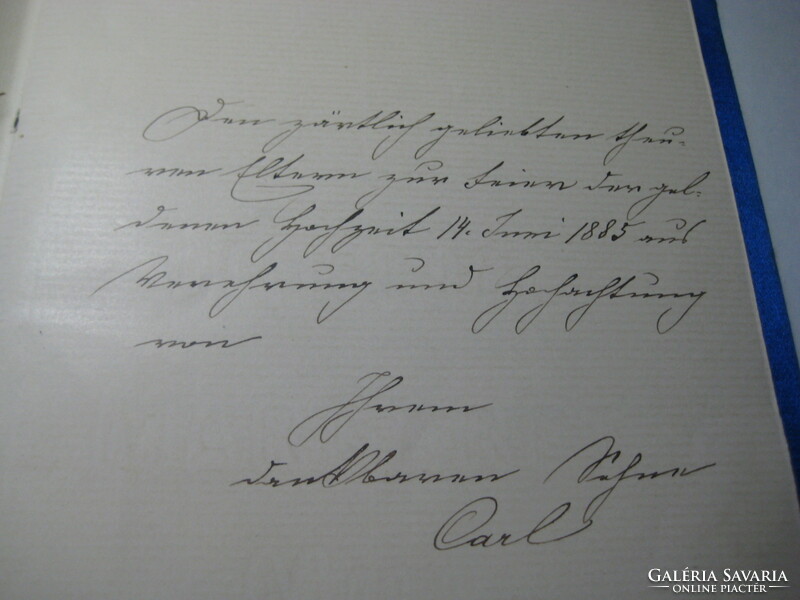 Den zärtlich geliebten theu-
ren Eltern zur Feier der gol-
denen Hochzeit 14. Juni 1885 aus
Verehrung und Hochachtung
von
Ihrem
dankbaren Sohne
Carl
GALÉRIA SAVARIA
ONLINE PIACTÉR